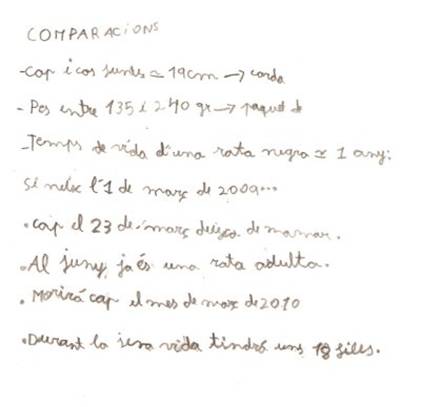 COMPARACIONS
-Cap i cos junts ≃ 19cm → corda
- Pes entre 135 i 240 gr → paquet de
-Temps de vida d'una rata negra ≃ 1 any:
Si neix l'1 de març de 2009...
• Cap el 23 de març deixa de mamar.
• Al juny, ja és una rata adulta.
• Morirá cap el mes de març de 2010
• Durant la seva vida tindrá uns 18 files.